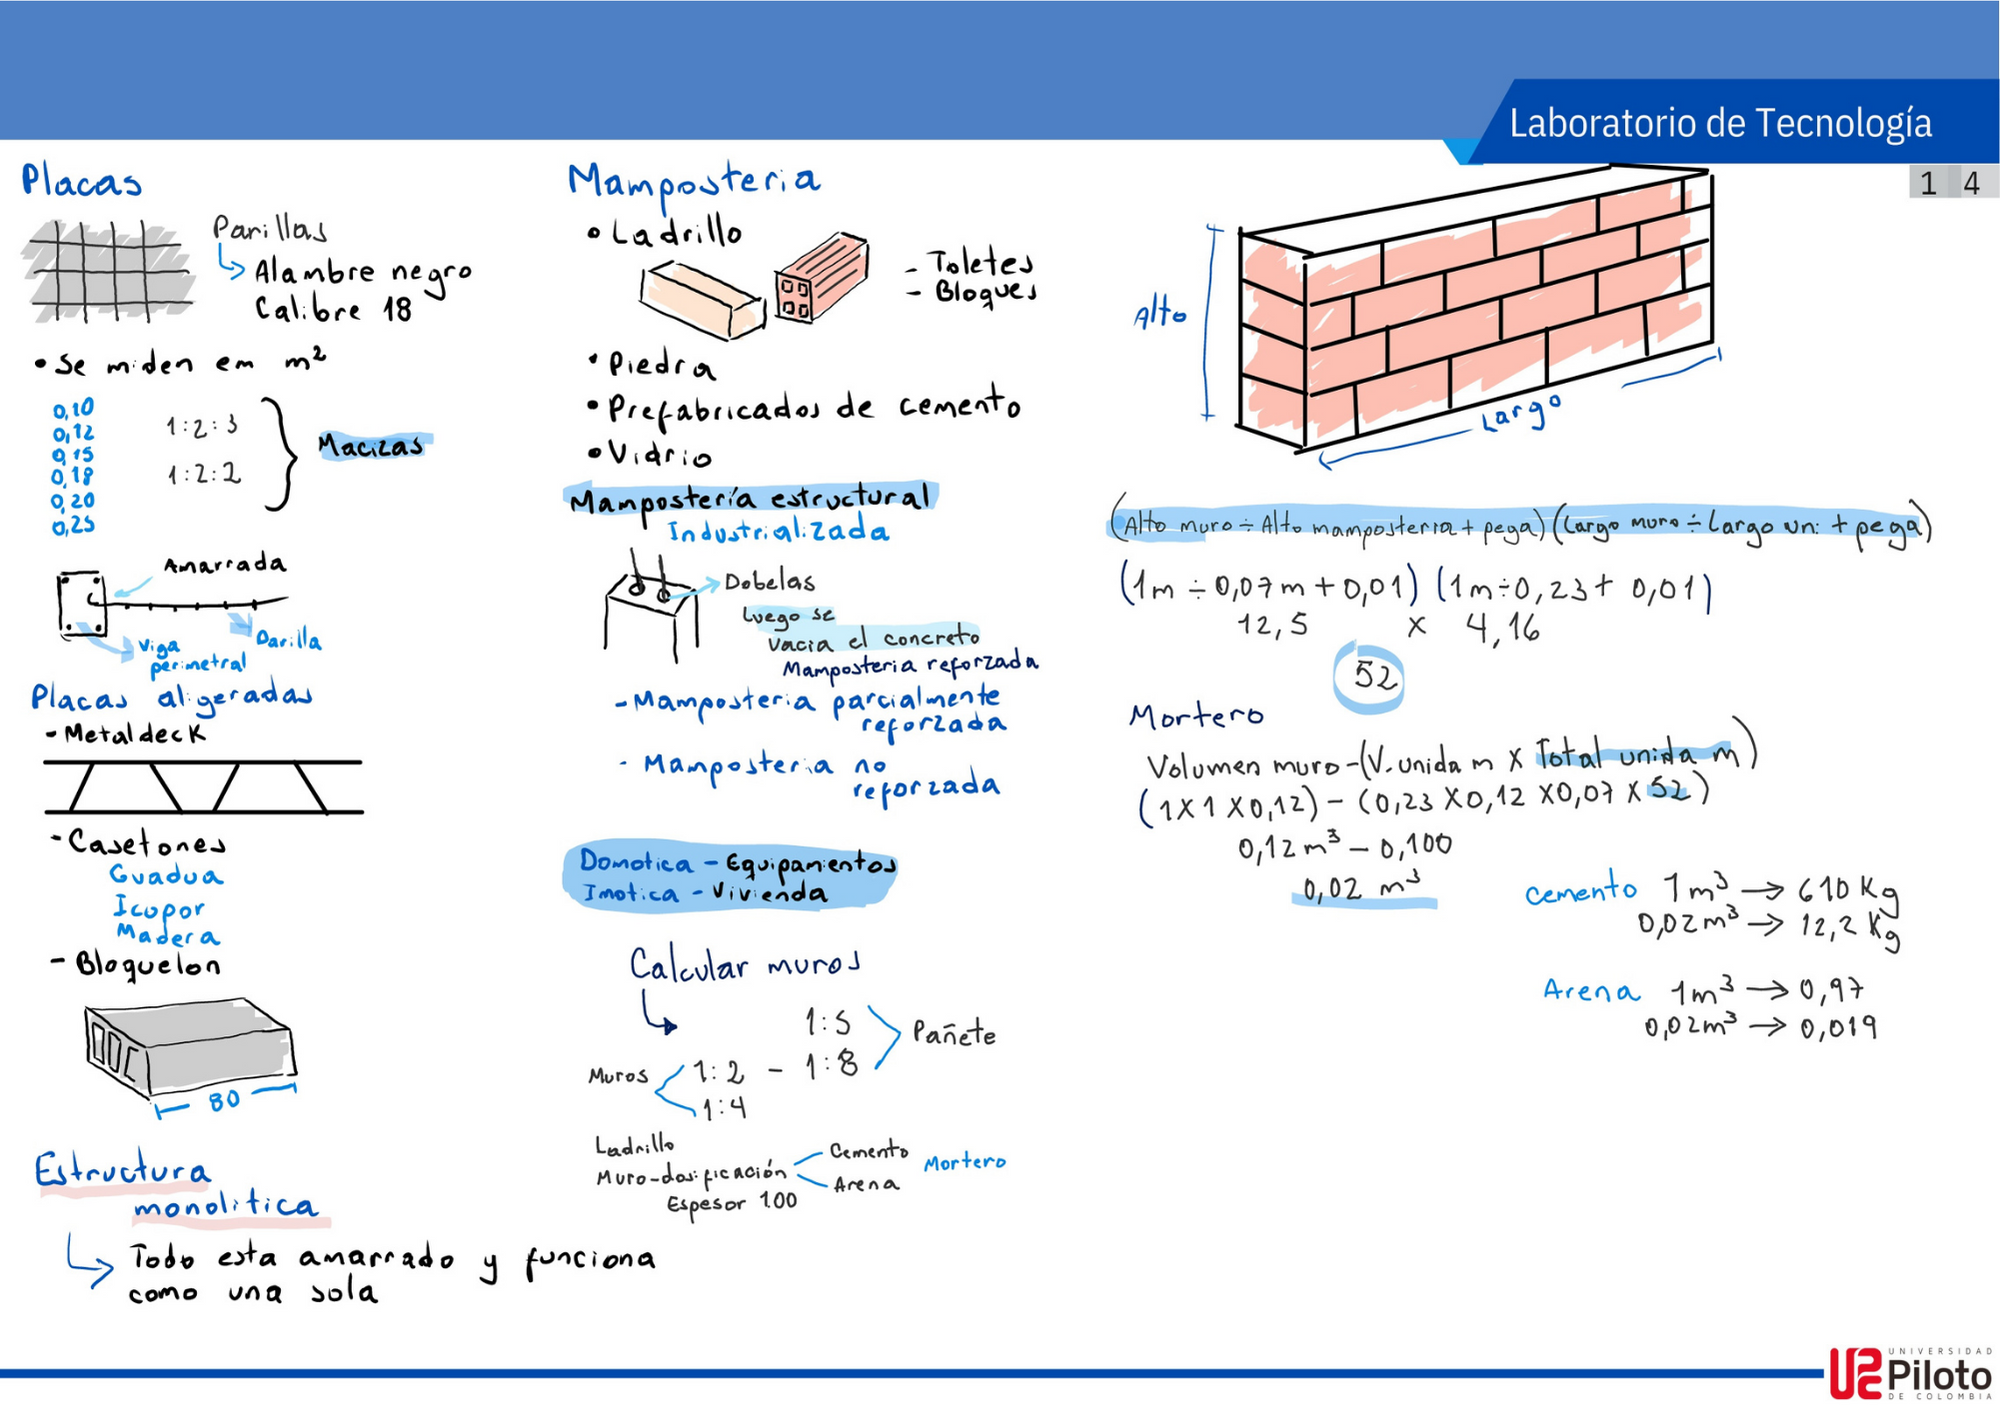 Laboratorio de Tecnología
1 4
Placas
Parillas
Alambre negro
Calibre 18
• Se miden em m²
0,10
0,12
0,15
0,18
0,20
0,25
1:2:3
1:2:2
Macizas
Amarrada
Viga
perimetral
Darilla
Placas aligeradas
- Metaldeck
- Casetones
Guadua
Icopor
Madera
- Bloquelon
80
Estructura
monolitica
Todo esta amarrado y funciona
como una sola
Mamposteria
• Ladrillo
- Toletes
- Bloques
• Piedra
• Prefabricados de cemento
• Vidrio
Mampostería estructural
Industrializada
Dobelas
Luego se
vacia el concreto
Mamposteria reforzada
- Mamposteria parcialmente
reforzada
- Mamposteria no
reforzada
Domotica - Equipamientos
Imotica - Vivienda
Calcular muros
1:5
Muros 1:2 - 1:8
1:4
Pañete
Ladrillo
Muro-dosificación
Espesor 1.00
Cemento
Arena
Mortero
Alto
Largo
(Alto muro ÷ Alto mamposteria + pega) (Largo muro ÷ Largo uni + pega)
(1m ÷ 0,07m + 0,01) (1m ÷ 0,23 + 0,01)
12,5 x 4,16
52
Mortero
Volumen muro - (V. unida m x Total unida m)
(1x1x0,12) - (0,23x0,12x0,07x52)
0,12 m³ - 0,100
0,02 m³
Cemento 1m³ → 610 Kg
0,02m³ → 12,2 Kg
Arena 1m³ → 0,97
0,02m³ → 0,019
UNIVERSIDAD
UPC Piloto
DE COLOMBIA